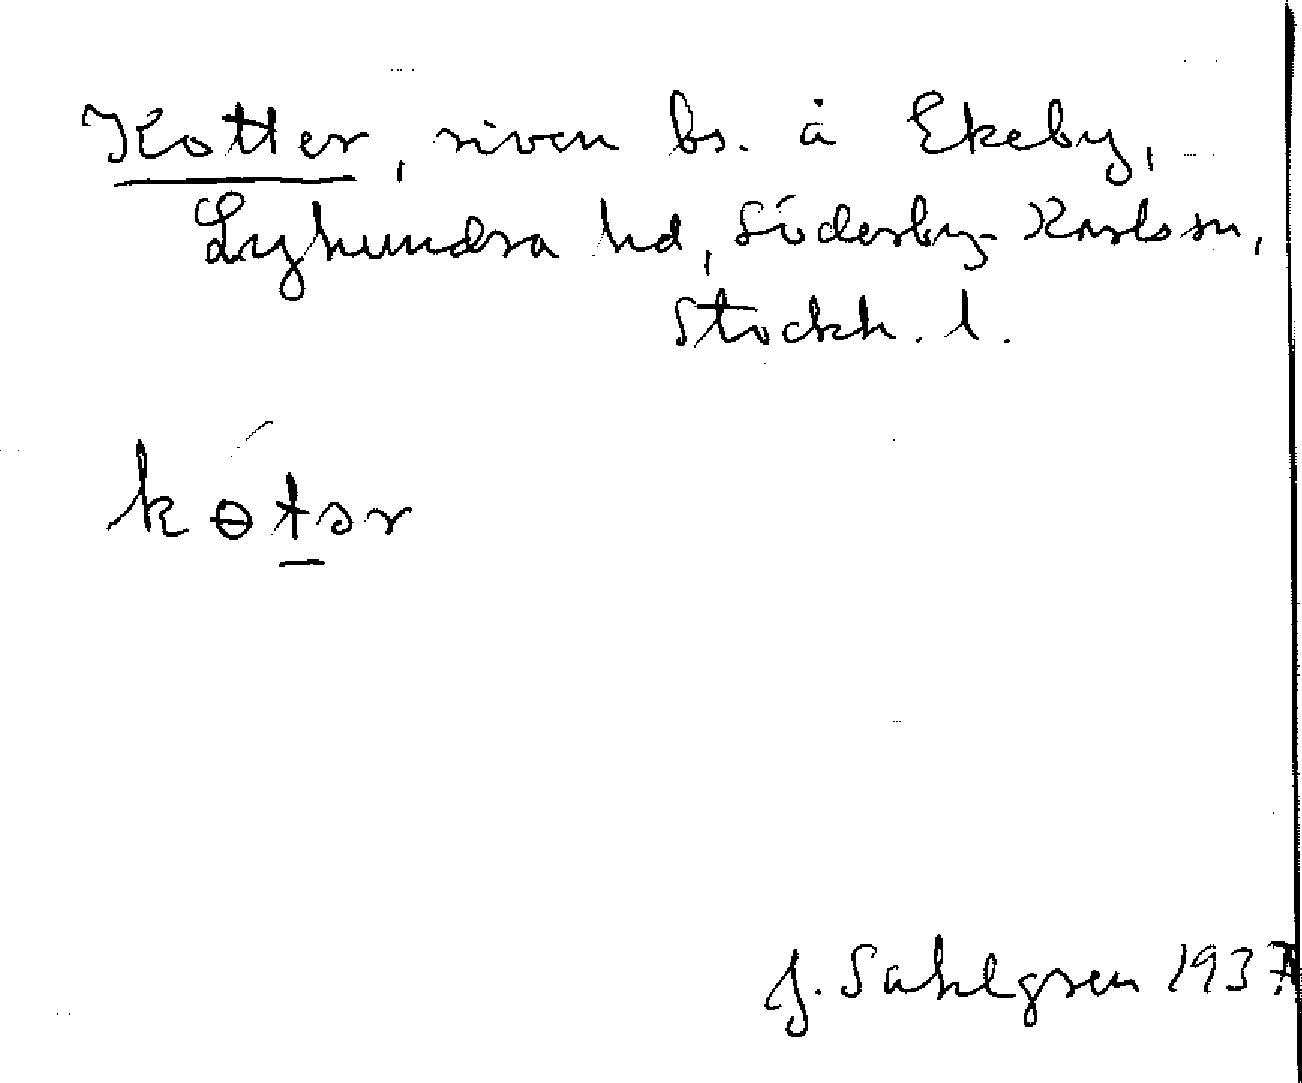 Kotter, riven bs. å Ekeby,
Lyhundra hd, Söderby-Karls sn,
Stockh. l.
kɵ́tər
J. Sahlgren 1937